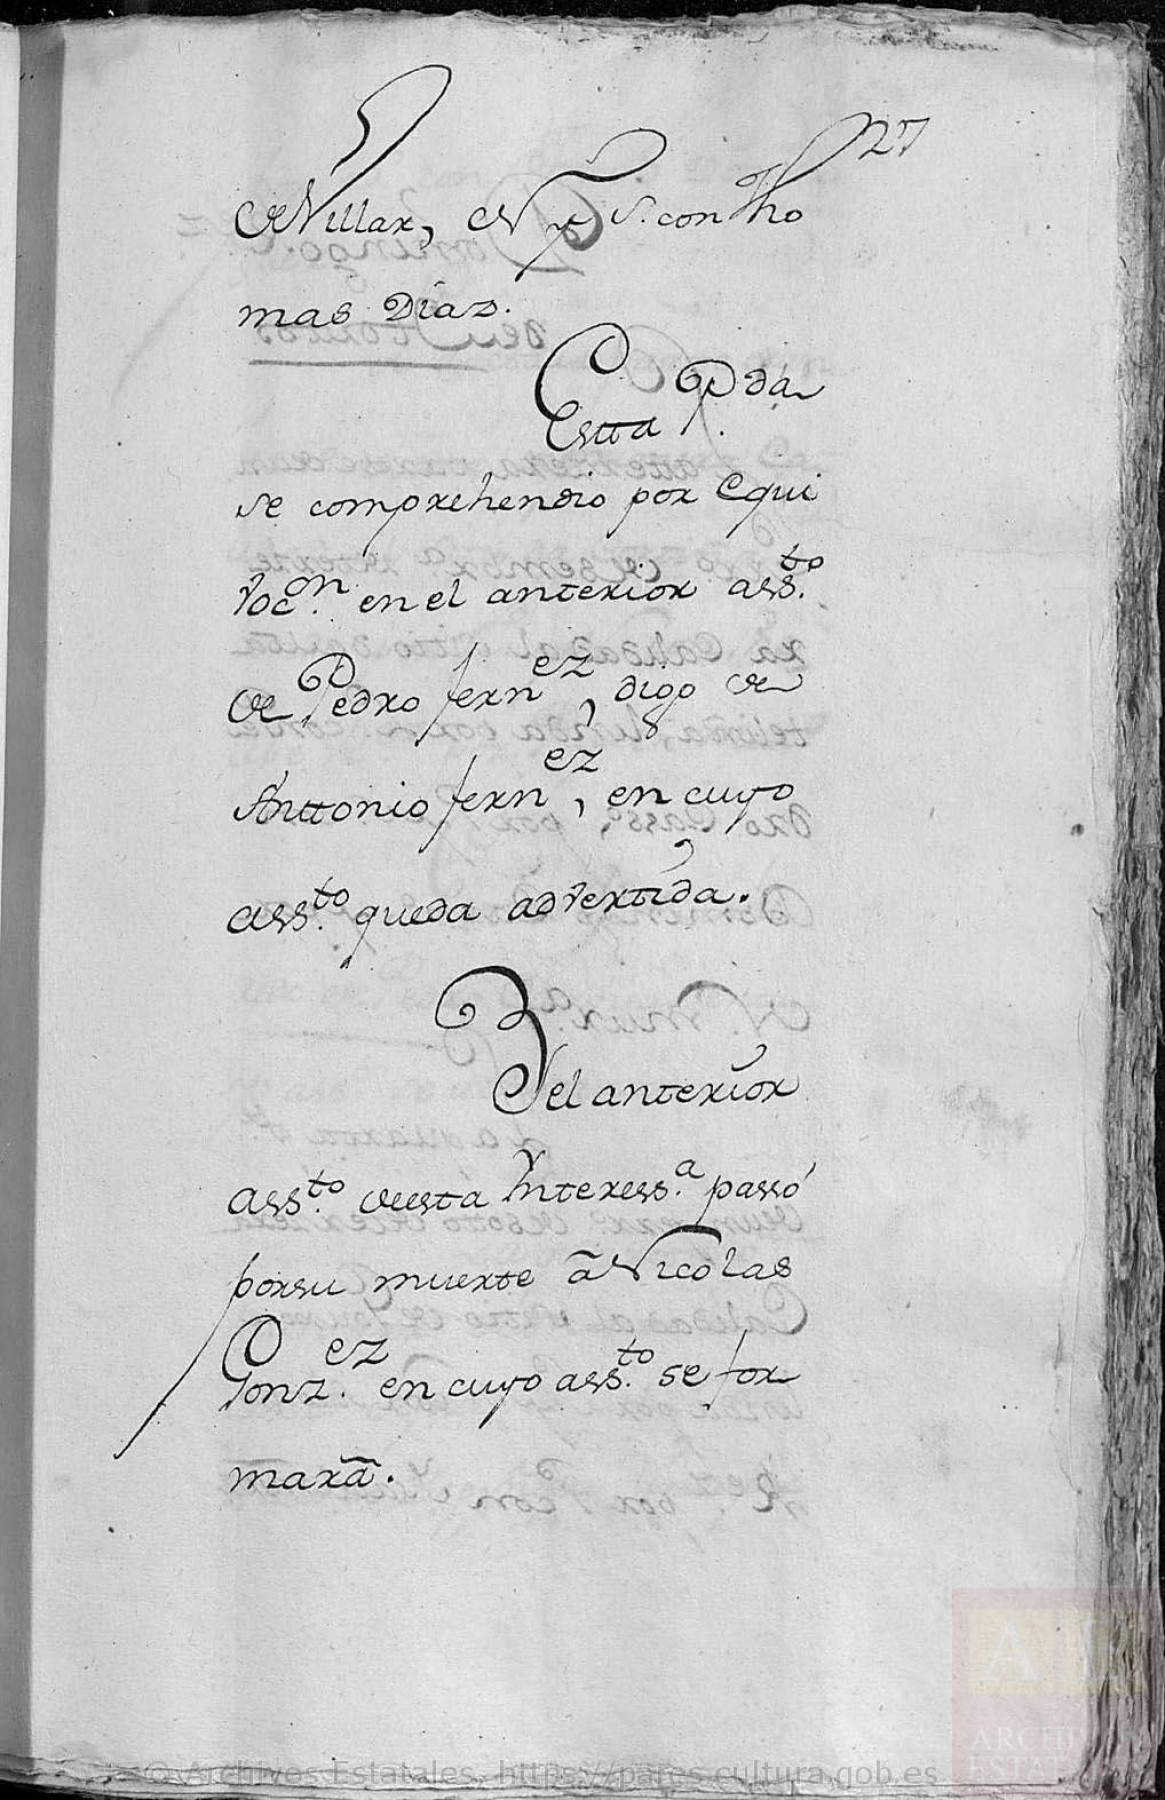 27
de Villar, N. y S. con Tho
mas Diaz.
Estta Pda
se comprehendio por equi
vocon. en el anterior assto.
de Pedro fernez, digo de
Anttonio fernez, en cuyo
assto. queda advertida.
Y el anterior
assto. deesta Interessa. passó
por su muerte a Nicolas
Gonzez. en cuyo assto. se for
mara.
© Archivos Estatales, https://pares.cultura.gob.es
ARCHIVOS
ESTATALES